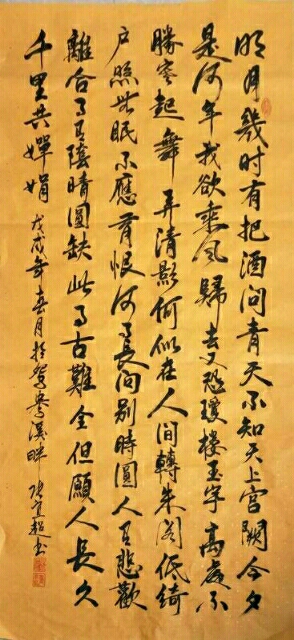 明月幾时有把酒问青天不知天上宫闕今夕
是何年我欲乘风歸去又恐瓊楼玉宇高處不
勝寒起舞弄清影何似在人间轉朱阁低绮
户照无眠不應有恨何事長向别時圆人有悲歡
離合月有陰晴圆缺此事古難全但願人長久
千里共嬋娟 戊戌年春月於鸳鸯溪畔 超书